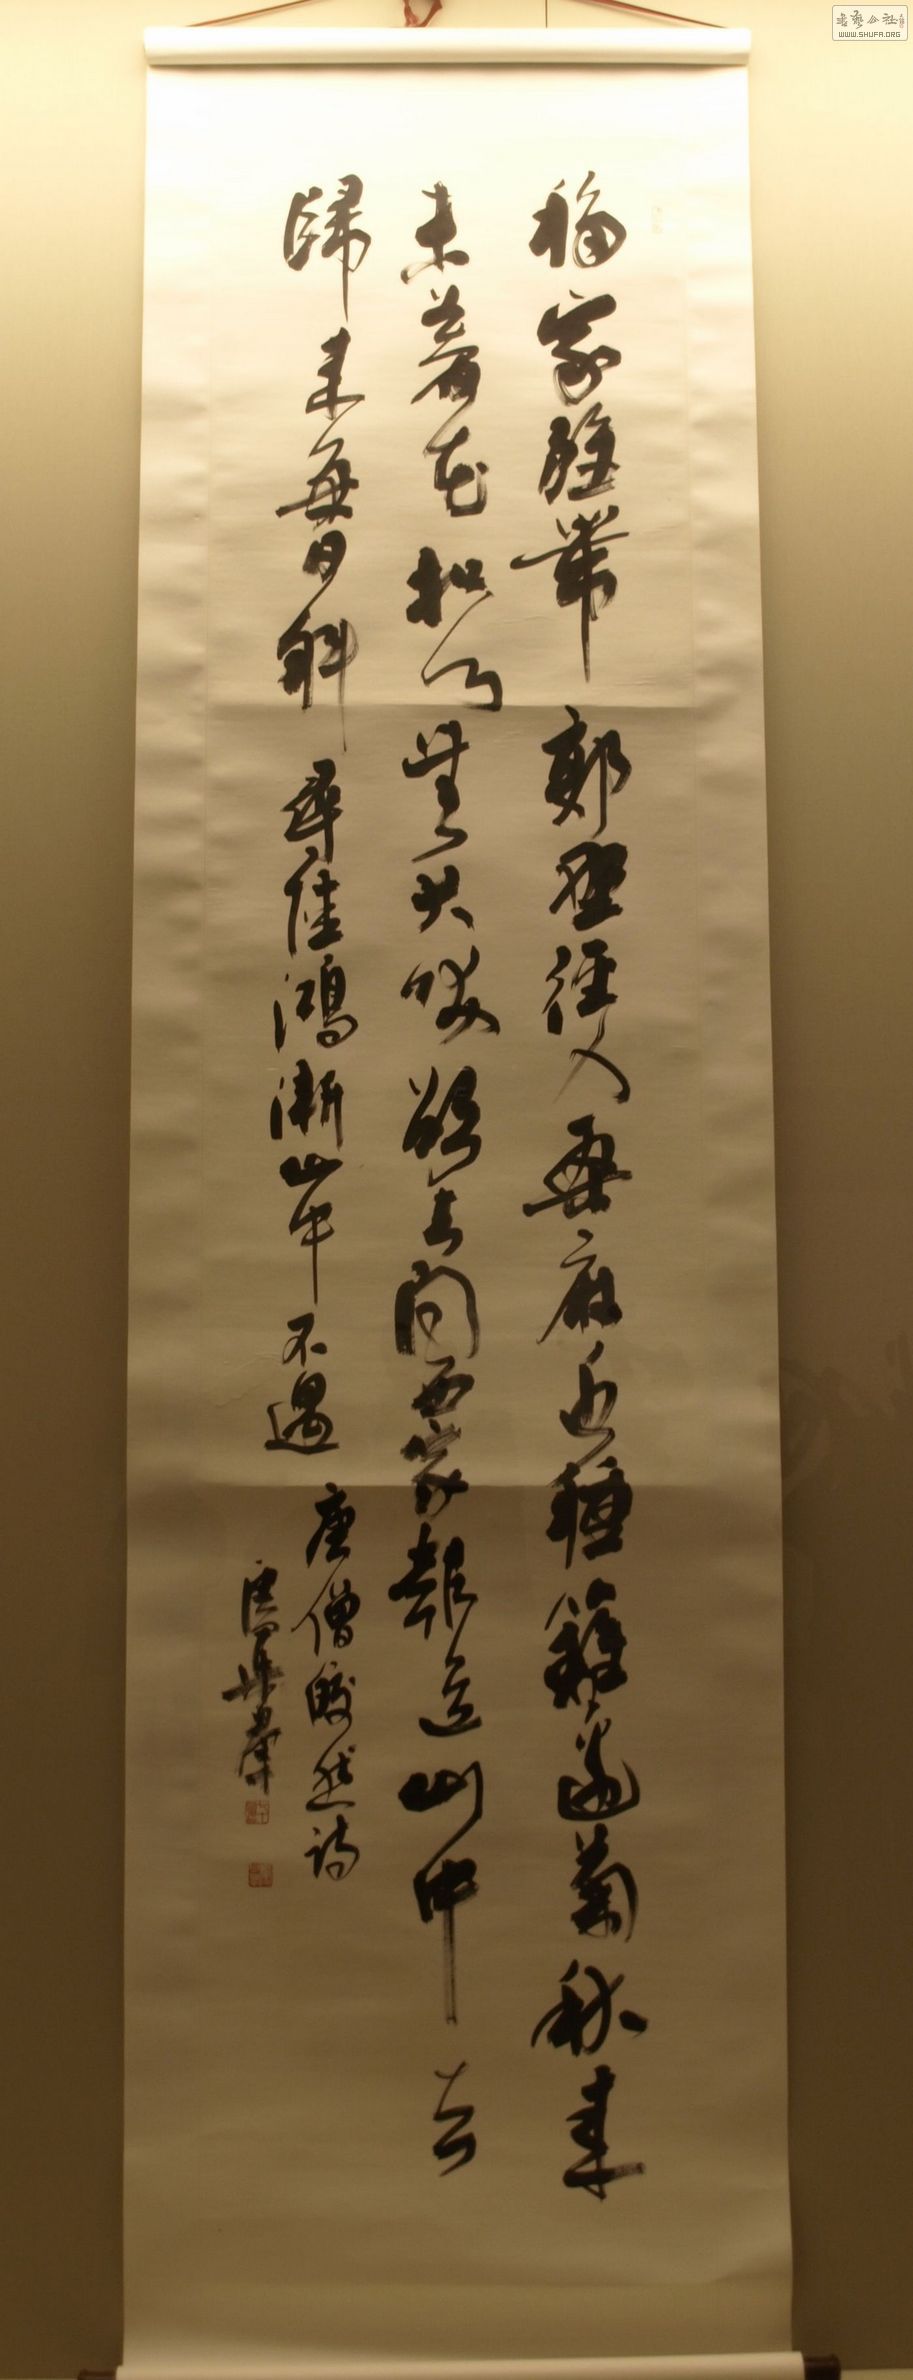 移家雖帶郭野徑入桑麻近種籬邊菊秋来
未著花扣門無犬吠欲去問西家報道山中去
歸来每日斜 尋陸鴻漸山中不遇 唐僧皎然詩
書藝公社
WWW.SHUFA.ORG